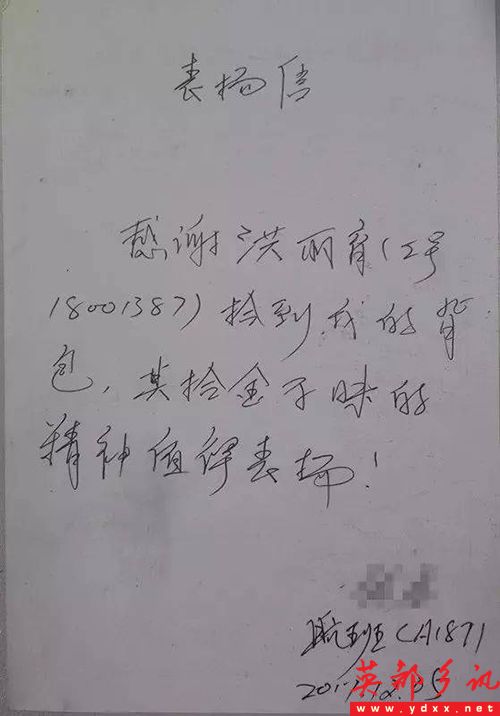 表扬信
感谢洪丽育(工号
18001387)捡到我的背
包，其拾金不昧的
精神值得表扬！
航班CA187)
英都乡讯
www.ydxx.net